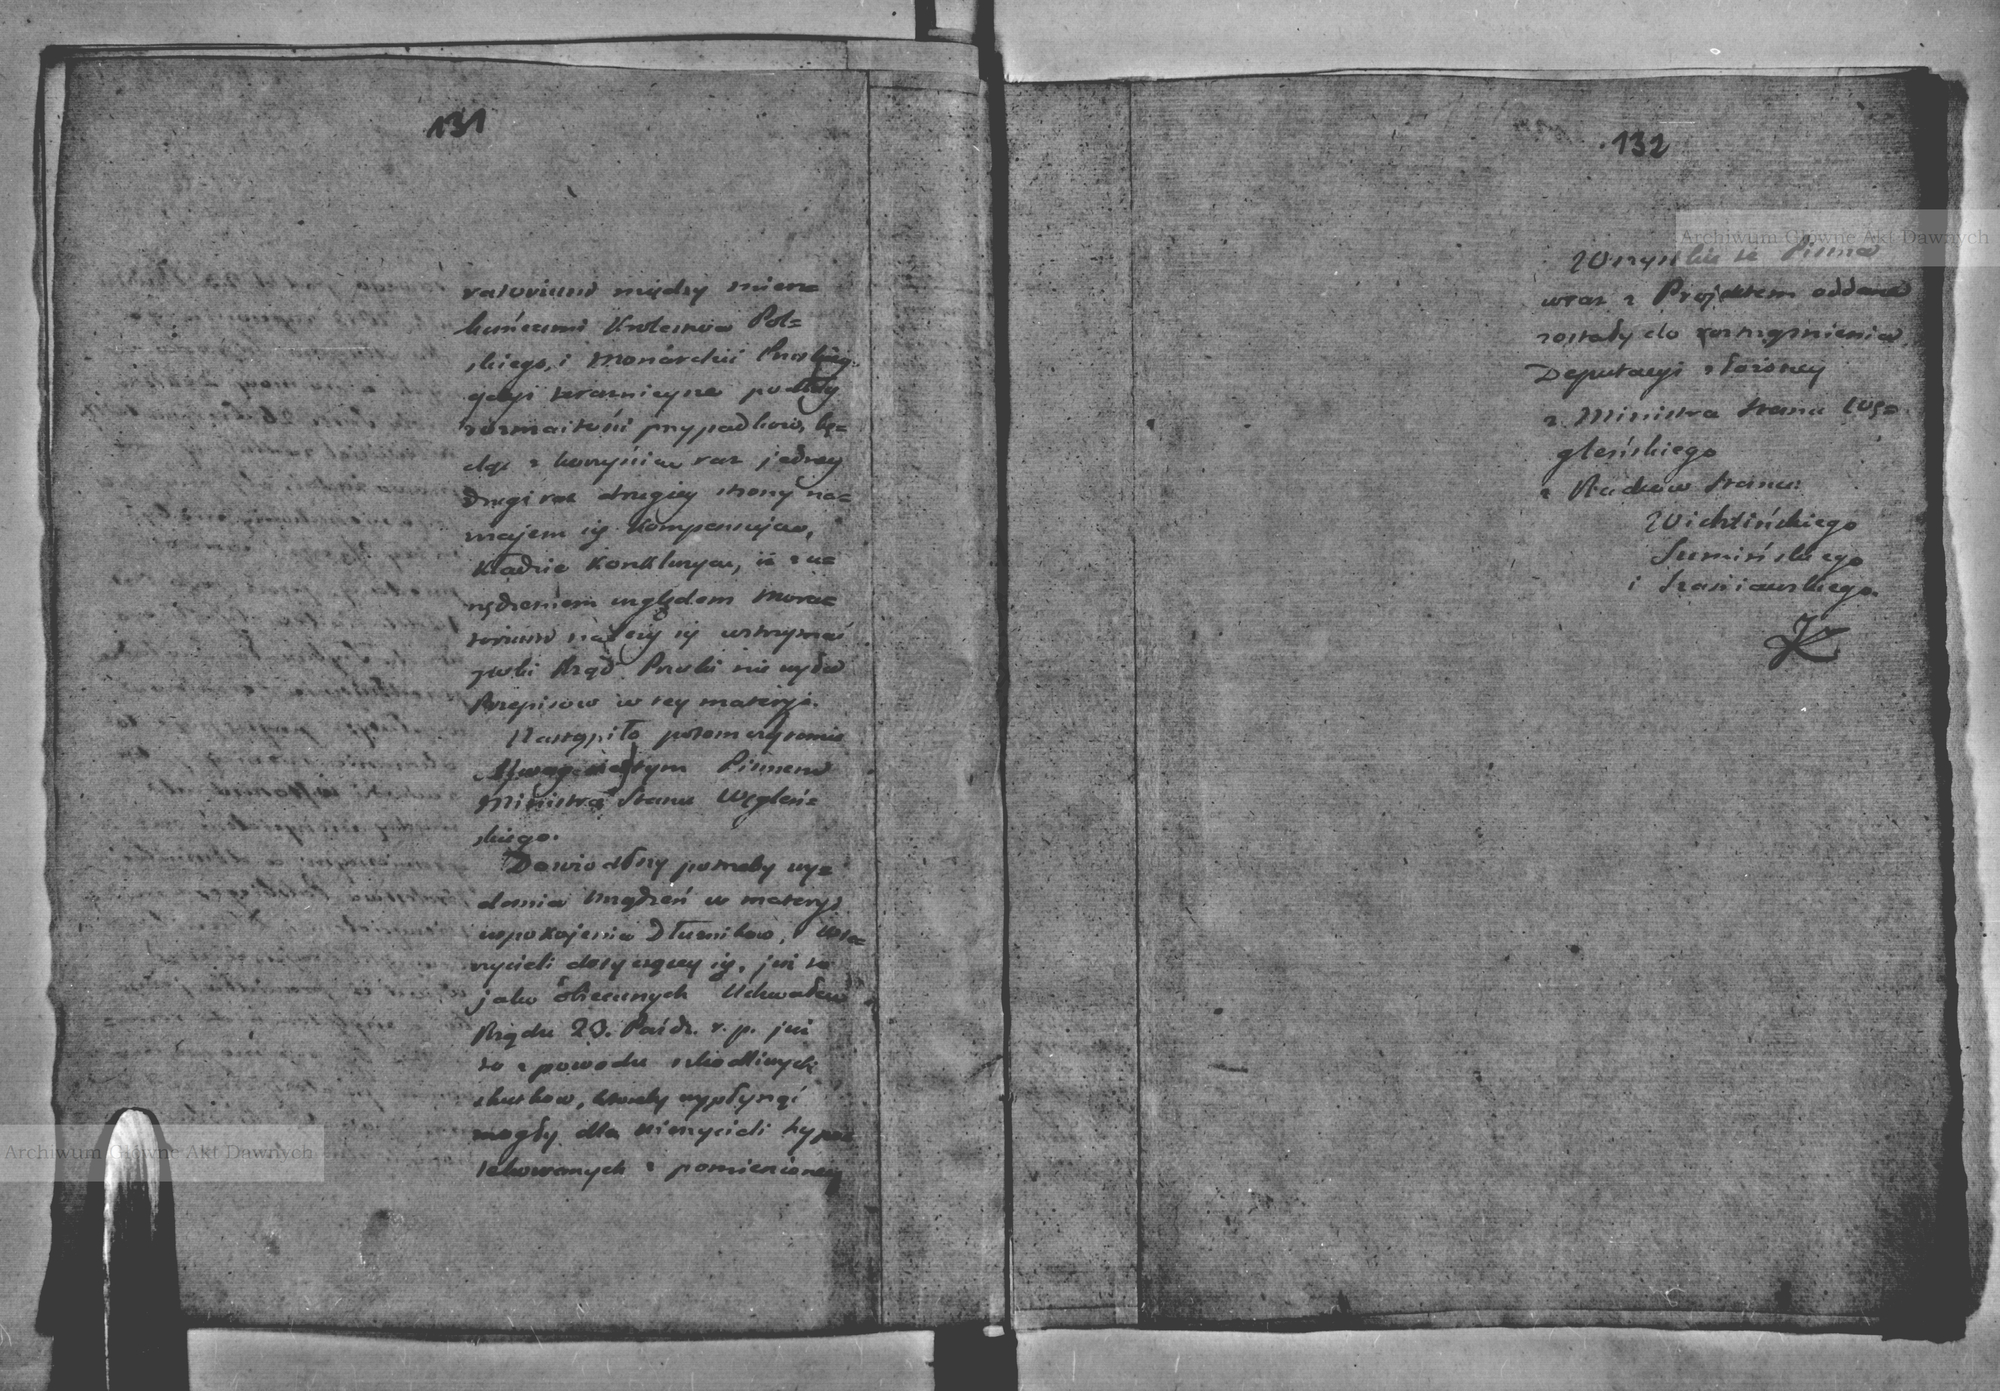 131
ratorium między miesz=
kańcami Krolestwa Pol=
skiego, i Monarchii Pruskiey.
gdyż teraznieysza podłóg
rozmaitości przypadków, bę=
dąc z korzyścią raz jedney
drugi raz drugiey strony na=
wzajem się kompensuje,
Kładzie Konkluzyą, iż z u=
rządzeniem względem Mora=
torium należy się wstrzymać
póki Rząd Pruski nie wyda
Przepisow w tey materyi.
Nastąpiło potom czytanie
Uwag nad tym Pismem
Ministra Stanu Węgleń=
skiego.
Dowiodłszy potrzeby wy=
dania Urządzeń w materyi
uspokojenia Dłużników, i Wie=
rzycieli dotyczącey się, już to
jako obiecanych Uchwałą
Rządu 23. Paźdz. r. p. już
to z powodu szkodliwych
skutkow, ktoreby wypłynąć
mogły dla wierzycieli hypo=
tekowanych z pomienioney
132
Archiwum Główne Akt Dawnych
Wszystkie te Pisma
wraz z Projektem oddane
zostały do roztrząśnienia
Deputacyi złożoney
z Ministra Stanu Wę=
gleńskiego
z Radców Stanu:
Wichlińskiego
Sumińskiego
i Szaniawskiego.
Archiwum Główne Akt Dawnych